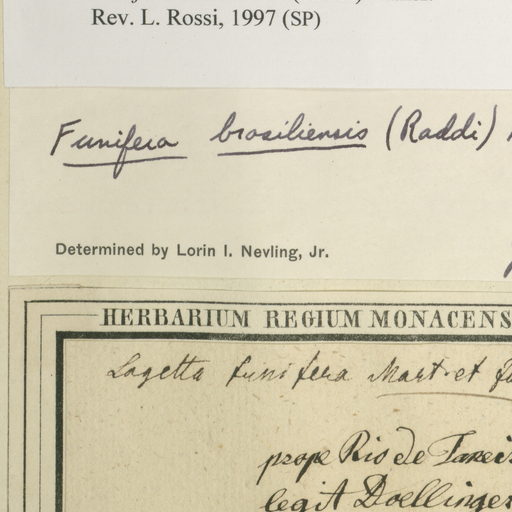 Rev. L. Rossi, 1997 (SP)
Funifera brasiliensis (Raddi)
Determined by Lorin I. Nevling, Jr.
HERBARIUM REGIUM MONACENS
Lagetta funifera Mart et
prope Rio de Janei
legit Doellinger